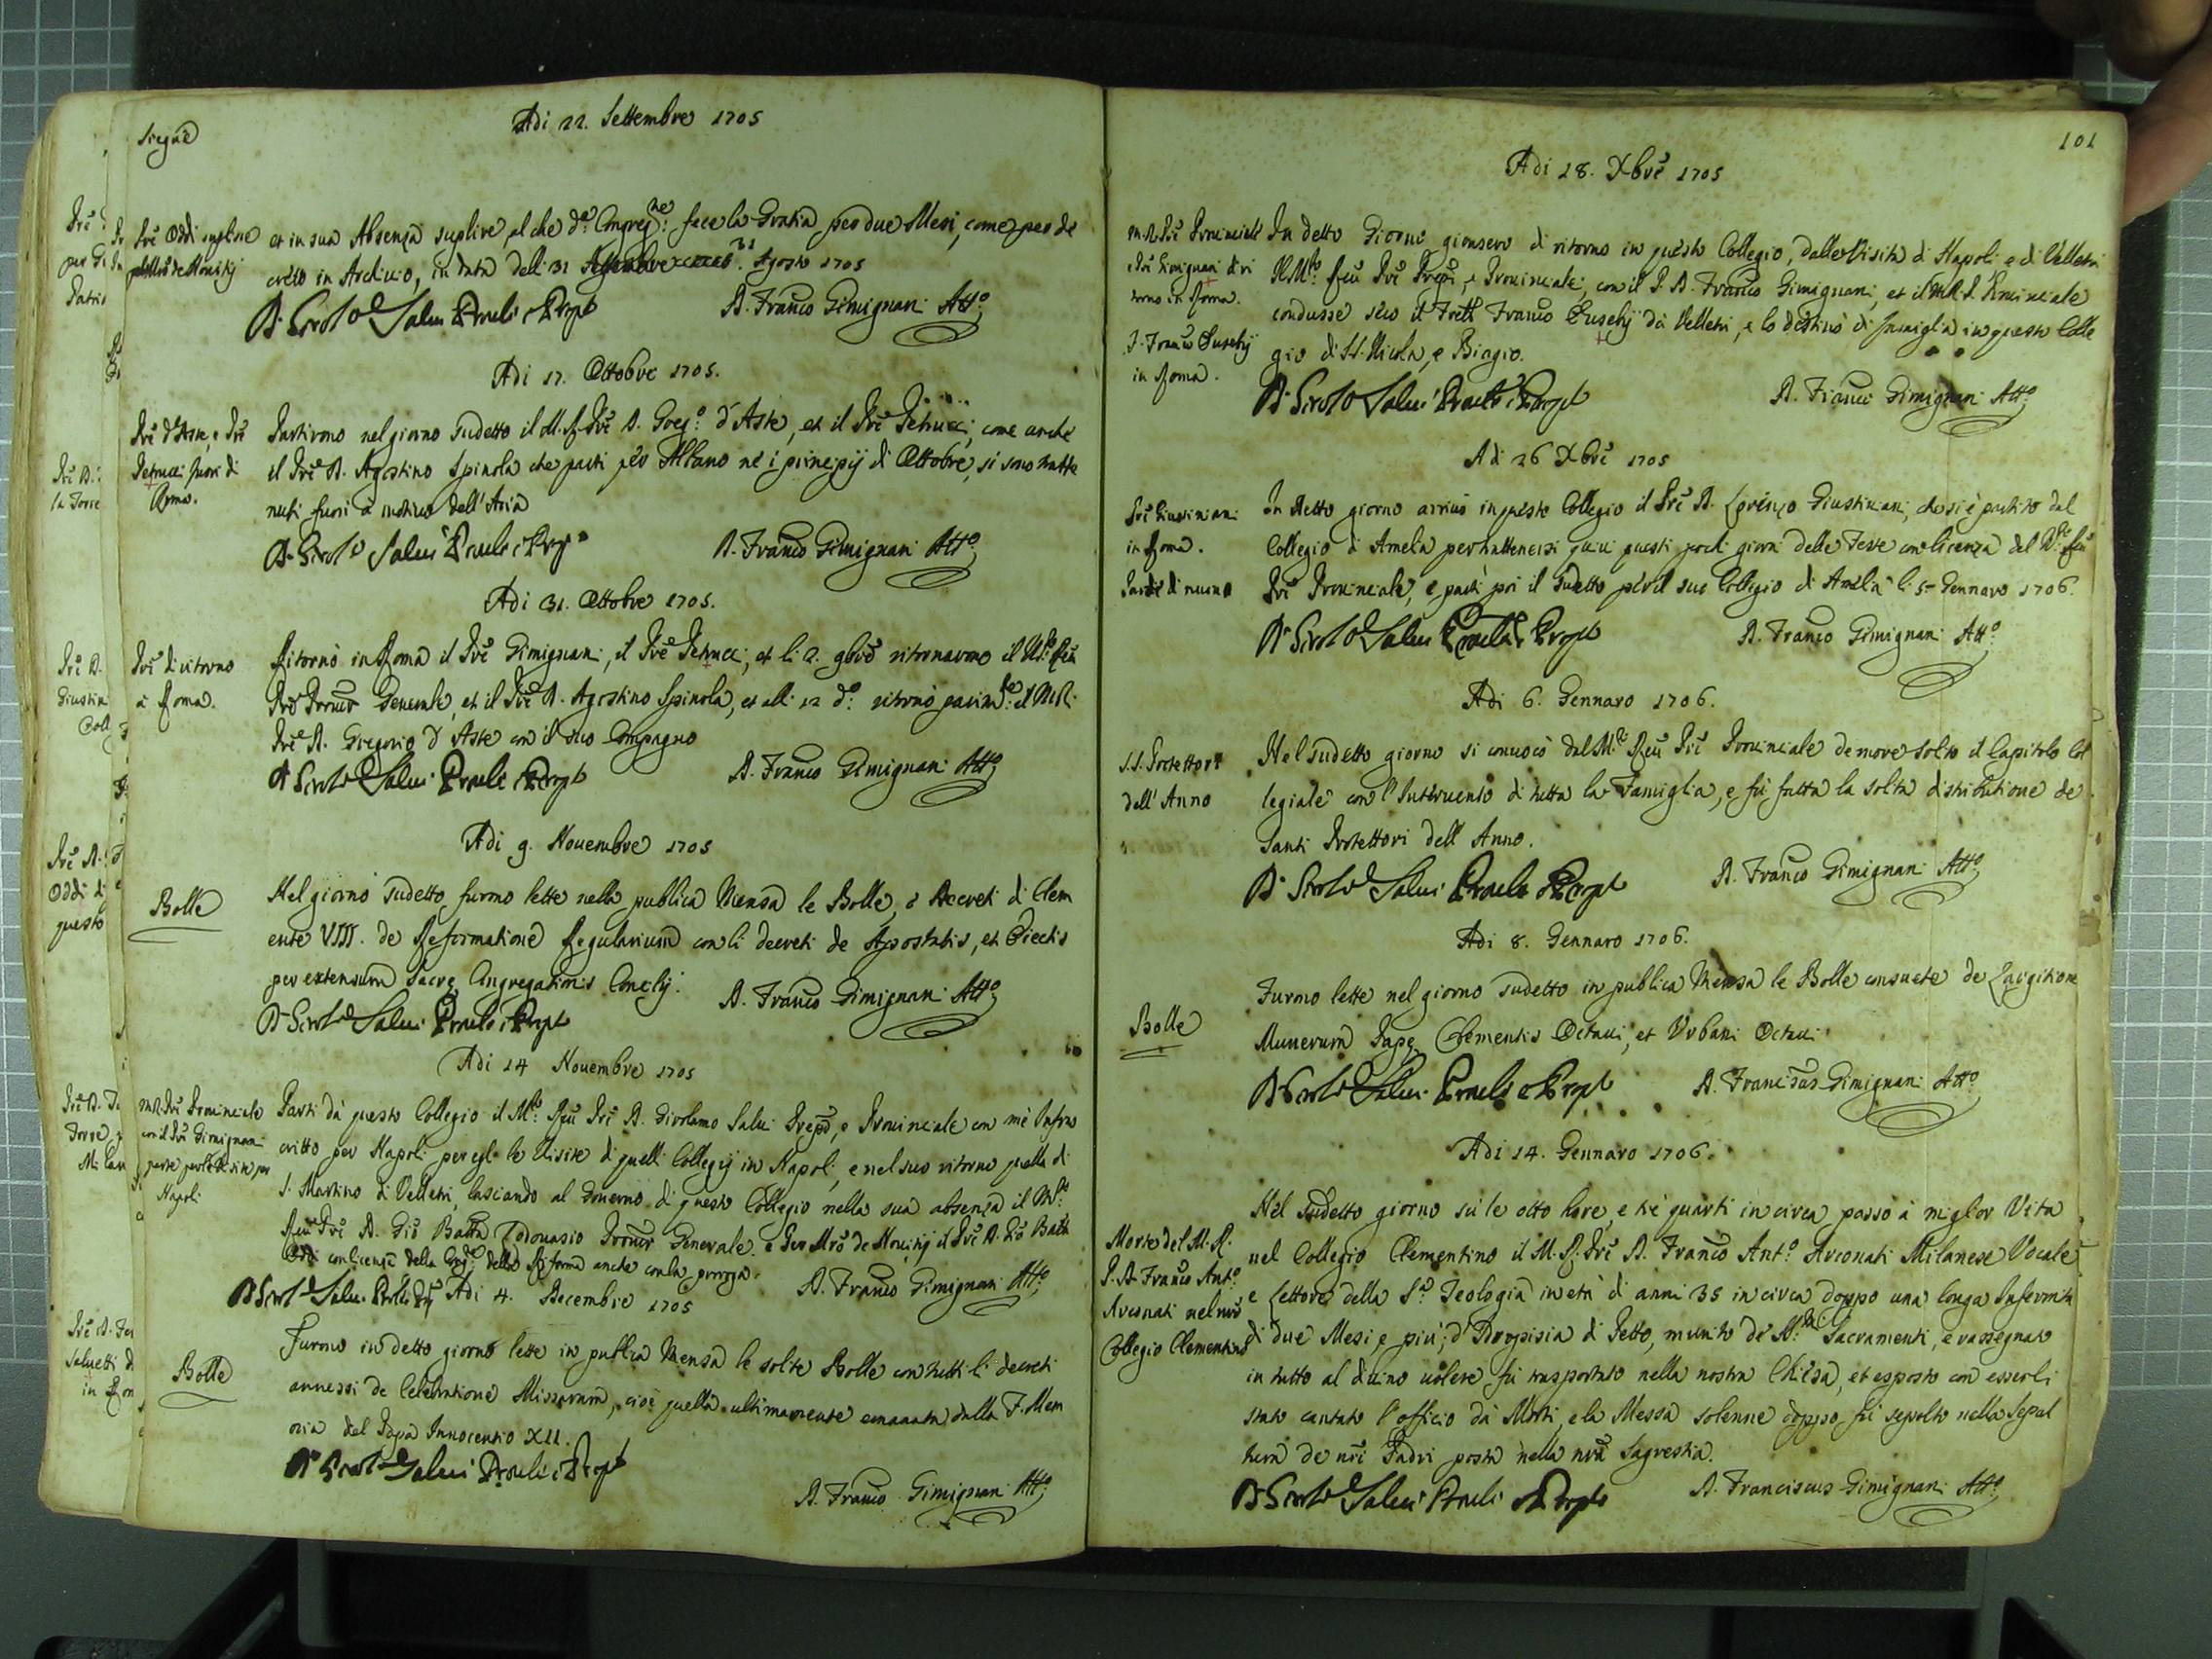 Siegue
Adi 22. Settembre 1705
Pre Oddi suplisce
pel Mro de Nouitij
et in sua Absenza suplire, al che da. Congregne: fece la Gratia per due Mesi, come per de
creto in Archiuio, in data delli 31 Agosto 1705
D. Girolo Salui Proule e Prepto
D. Franco Gimignani Atto.
Adi 17. Ottobre 1705.
Pre d'Aste, e Pre
Petrucci fuori di
Roma.
Partirono nel giorno sudetto il M. R. Pre D. Grego. d'Aste, et il Pre Petrucci, come anche
il Pre D. Agostino Spinola che parti per Albano ne i principij di Ottobre, si sono tratte
nuti fuori a motiuo dell'Aria
D. Girolo Salui Proule e Prepto
D. Franco Gimignani Atto.
Adi 31. Ottobre 1705.
Pri di ritorno
à Roma.
Ritornò in Roma il Pre Gimignani, il Pre Petrucci, et li 2. 9bre ritornarono il M. Reu
Pre Procur Generale, et il Pre D. Agostino Spinola, et alli 12 do. ritornò parimte. il M R.
Pre D. Gregorio d'Aste con il suo Compagno
D Girolo Salui Proule e Prepto
D. Franco Gimignani Atto.
Adi 9. Nouembre 1705
Bolle
Nel giorno sudetto, furno lette nella publica Mensa le Bolle, e Decreti di Clem
ente VIII. de Reformatione Regularium con li decreti de Apostatis, et Eiectis
per extensum Sacre Congregationis Concilij.
D. Franco Gimignani Atto.
D Girolo Salui Proule e Prepto
Adi 14 Nouembre 1705
M. R. Pre Prouinciale
con il Pre Gimignani
parte per le Visite per
Napoli
Parti da questo Collegio il Mto. Reu Pre D. Girolamo Salui Prepto, e Prouinciale con mè Infras
critto per Napoli per le Visite di quelli Collegij in Napoli, e nel suo ritorno quella di
S. Martino di Velletri, lasciando al Gouerno di questo Collegio nella sua absenza il Mto.
Reu Pre D. Gio Batta Lodouasio Procur Generale. e Per Mro de Nouitij il Pre D. Gio Batta
Oddi con licenza della Congne della Riforma anche con la proroga.
D. Franco Gimignani Atto.
D Girolo Salui Adi 4. Decembre 1705
Bolle
Furno in detto giorno lette in publica Mensa le solite Bolle con tutti li decreti
annessi de Celebratione Missarum, cioè quella ultimamente emanata dalla F. Mem
oria del Papa Innocentio XII.
D Girolo Salui Proule e Prepto
D. Franco Gimignani Atto.
101
Adi 18. Xbre 1705
M. R. Pre Prouinciale
e Pre Gimignani di ri
torno in Roma.
F. Franco Eusebij
in Roma.
In detto Giorno gionsero di ritorno in questo Collegio, dalle Visite di Napoli e di Velletri
Il Mto. Reu Pre Prepto, e Prouinciale, con il P. D. Franco Gimignani, et il M. R. P. Prouinciale
condusse seco il Frello Franco Eusebij da Velletri, e lo destinò di famiglia in questo Colle
gio di SS. Nicola, e Biagio.
D. Girolo Salui Proule e Prepto
D. Franco Gimignani Atto.
Adi 26 Xbre 1705
Pre Giustiniani
in Roma.
Parte di nuouo
In detto giorno arriuò in questo Collegio il Pre D. Lorenzo Giustiniani, che si è partito dal
Collegio di Amelia per trattenersi quiui questi pochi giorni delle Feste con licenza del M. Reu
Pre Prouinciale, e parti poi il sudetto per il suo Collegio di Amelia li 5 Gennaro 1706.
D. Girolo Salui Proule e Prepto
D. Franco Gimignani Atto.
Adi 6. Gennaro 1706.
S.S. Protettori
dell'Anno
Nel sudetto giorno si conuocò dal M. Reu Pre Prouinciale de more solito il Capitolo Col
legiale con l'Interuento di tutta la Famiglia, e fù fatta la solita distributione de
Santi Protettori dell'Anno.
D. Girolo Salui Proule e Prepto
D. Franco Gimignani Atto.
Adi 8. Gennaro 1706.
Bolle
Furno lette nel giorno sudetto in publica Mensa le Bolle consuete de Largitione
Munerum Pape Clementis Octaui, et Vrbani Octaui
D Girolo Salui Proule e Prepto
D. Franciscus Gimignani Atto.
Adi 14. Gennaro 1706.
Morte del M. R.
P. D. Franco Anto.
Arconati nel nro
Collegio Clementino
Nel sudetto giorno sù le otto hore, e trè quarti in circa passò à miglior Vita
nel Collegio Clementino il M. R. Pre D. Franco Anto. Arconati Milanese Vocale
e Lettore della Sa. Teologia in età di anni 35 in circa doppo una longa Infermità
di due Mesi, e più, d'Idropisia di Petto, munito de SS.mi Sacramenti, e rassegnato
in tutto al diuino uolere fù trasportato nella nostra Chiesa, et esposto con esserli
stato cantato l'officio da Morti, e la Messa solenne doppo fù sepolto nella Sepol
tura de nri Padri posta nella nra Sagrestia.
D Girolo Salui Proule e Prepto
D. Franciscus Gimignani Atto.